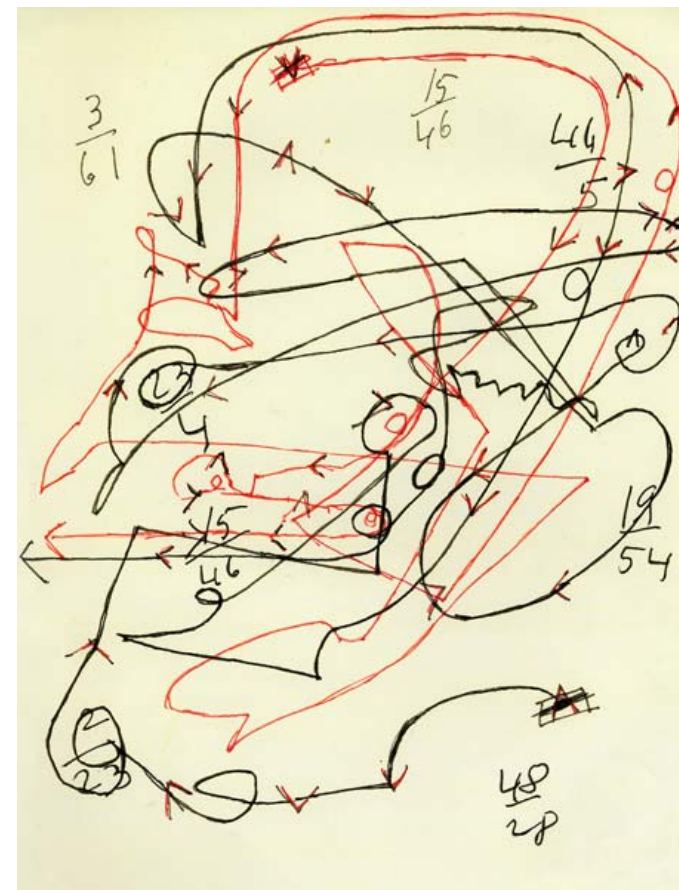 3
61
15
46
44
5
4
15
46
19
54
2
23
48
28